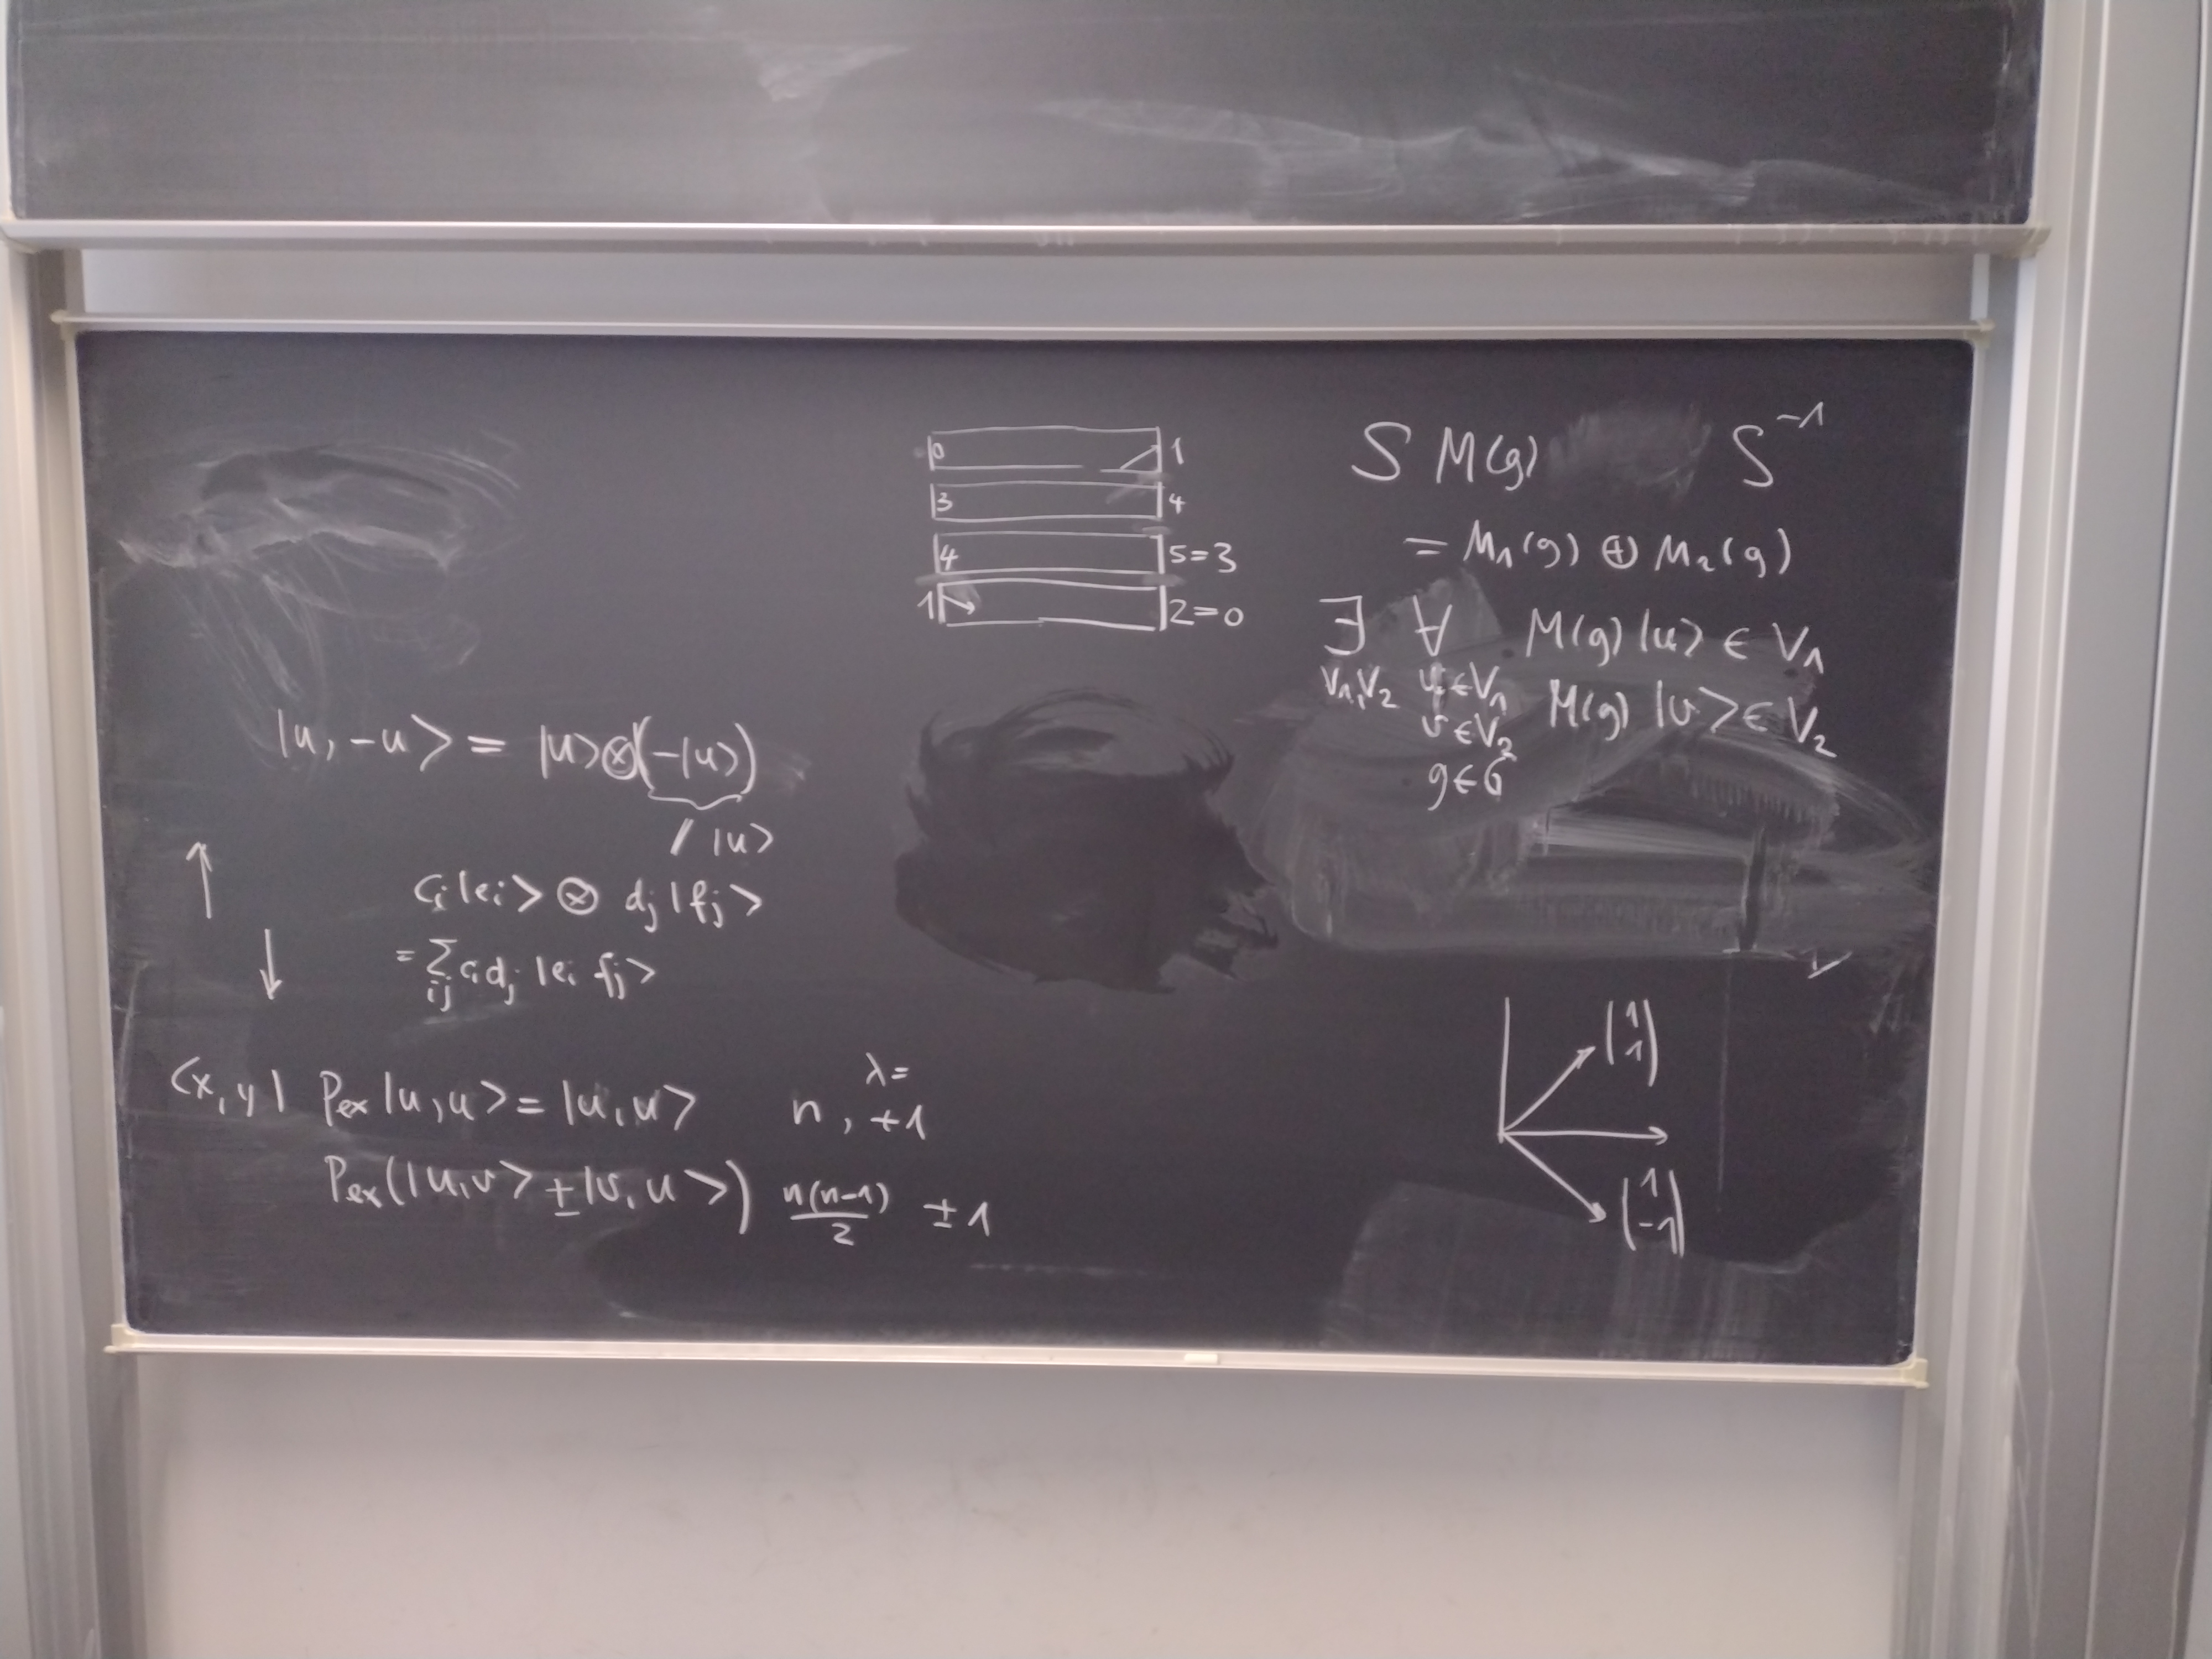 |u, -u> = |u>⊗(-|u>)
/ |u>
cᵢ|eᵢ> ⊗ dⱼ|fⱼ>
= ∑ᵢⱼ cᵢdⱼ |eᵢ fⱼ>
<x,y| Pₑₓ|u,u> = |u,u> n, λ= +1
Pₑₓ(|u,v> ± |v,u>) n(n-1)/2 ±1
0 1
3 4
4 5=3
1 2=0
S M(g) S⁻¹
= M₁(g) ⊕ M₂(g)
∃ ∀ M(g)|u> ∈ V₁
V₁,V₂ u∈V₁ M(g)|v> ∈ V₂
v∈V₂
g∈G
(1
1)
(1
-1)